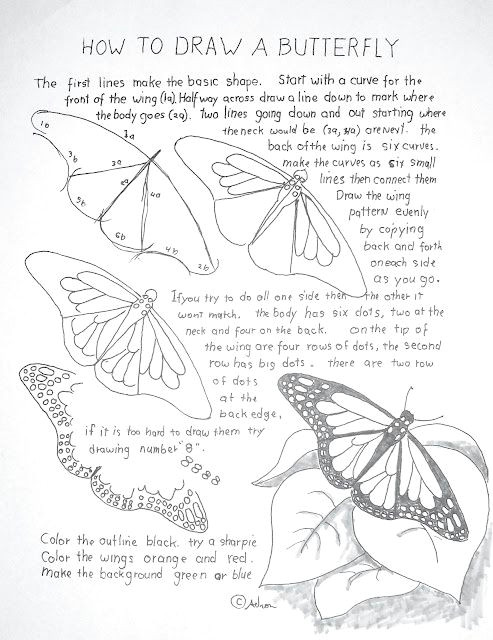 HOW TO DRAW A BUTTERFLY
The first lines make the basic shape. Start with a curve for the
front of the wing (1a). Half way across draw a line down to mark where
the body goes (2a). Two lines going down and out starting where
the neck would be (3a, 4a) are next. the
back of the wing is six curves.
make the curves as six small
lines then connect them
Draw the wing
pattern evenly
by copying
back and forth
on each side
as you go.
1b
1a
3b
3a
2a
4a
5b
6b
4b
2b
If you try to do all one side then the other it
wont match. the body has six dots, two at the
neck and four on the back. on the tip of
the wing are four rows of dots, the second
row has big dots. there are two row
of dots
at the
back edge.
if it is too hard to draw them try
drawing number "8".
Color the outline black. try a sharpie
Color the wings orange and red.
make the background green or blue
©